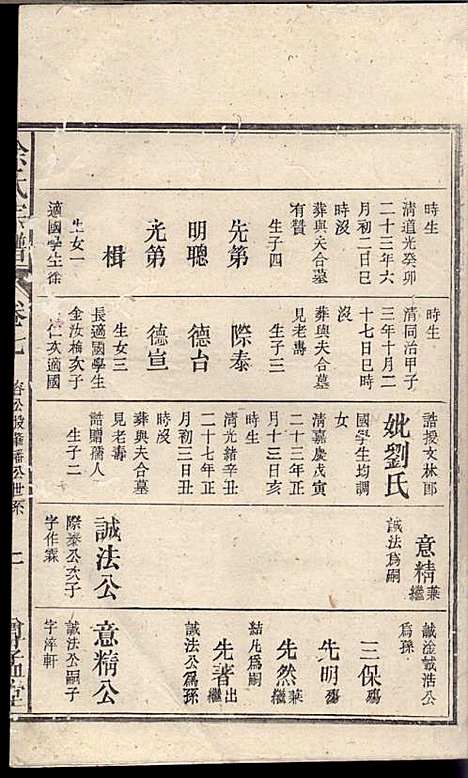 時生
清道光癸卯
二十三年六
月初二日巳
時沒
葬與夫合墓
有贊
生子四
先第
明聰
光第
楫
生女一
適國學生徐
時生
清同治甲子
三年十月二
十七日巳時
沒
葬與夫合墓
見老壽
生子三
際泰
德台
德宣
生女三
長適國學生
金汝梅次子
仁次適國
誥授文林郎
妣劉氏
國學生均調
女
清嘉慶戊寅
二十三年正
月十三日亥
時生
清光緒辛丑
二十七年正
月初三日丑
時沒
葬與夫合墓
見老壽
誥贈孺人
生子二
意精兼繼
誠法爲嗣
誠法公
際泰公次子
字作霖
誠淦誠浩公
爲孫
三保殤
先明殤
先然兼繼
結凡爲嗣
先著出繼
誠法公爲孫
意精公
誠法公嗣子
字滓軒
余氏宗譜
卷七
二